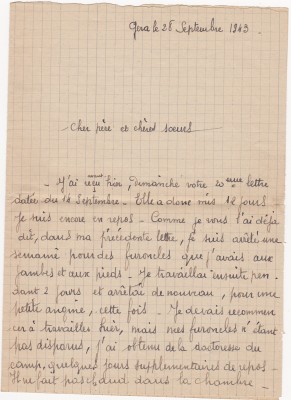 Gera le 28 Septembre 1943
Cher père et chères soeurs
- J'ai reçu hier, Dimanche votre 20ème lettre
datée du 16 Septembre - Elle a donc mis 12 jours -
Je suis encore en repos - Comme je vous l'ai déjà
dit, dans ma précédente lettre, je suis arrêté une
semaine pour des furoncles que j'avais aux
jambes et aux pieds - Je travaillai ensuite pen-
dant 2 jours et arrêtai de nouveau, pour une
petite angine, cette fois - Je devais recommen
cer à travailler hier, mais mes furoncles n'étant
pas disparus, j'ai obtenu de la doctoresse du
camp, quelques jours supplémentaires de repos -
Il ne fait pas chaud dans la chambre -